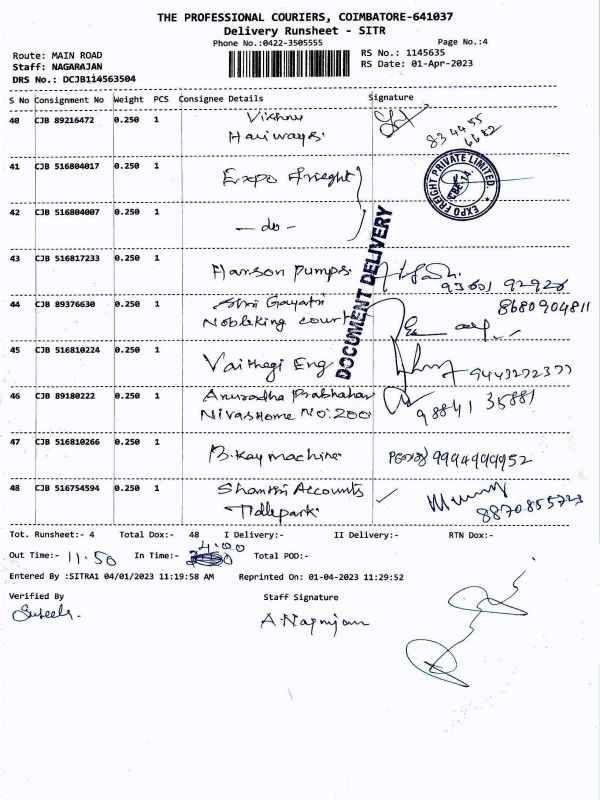 THE PROFESSIONAL COURIERS, COIMBATORE-641037
Delivery Runsheet - SITR
Phone No.:0422-3505555
Page No.:4
Route: MAIN ROAD
RS No.: 1145635
Staff: NAGARAJAN
RS Date: 01-Apr-2023
DRS No.: DCJB114563504
S No Consignment No Weight PCS Consignee Details Signature
40 CJB 89216472 0.250 1 Vishnu
Hairways.
41 CJB 516804017 0.250 1 Expo Frieght
EXPO FREIGHT PRIVATE LIMITED.
CBE-14
42 CJB 516804007 0.250 1 - do -
DOCUMENT DELIVERY
43 CJB 516817233 0.250 1 Hanson Pumps.
44 CJB 89376630 0.250 1 Shri Gayatri
8680904811
Nobleking court
45 CJB 516810224 0.250 1 Vaithegi Eng
46 CJB 89180222 0.250 1 Anuradha Prabhahar
Nivas Home No: 200
98841 35881
47 CJB 516810266 0.250 1 B.Kay machine
9994999952
48 CJB 516754594 0.250 1 Shanthi Accounts
Tidlepark
8870855723
Tot. Runsheet:- 4 Total Dox:- 48 I Delivery:- II Delivery:- RTN Dox:-
Out Time:- 11.50 In Time:- 4.00 Total POD:-
Entered By :SITRA1 04/01/2023 11:19:58 AM Reprinted On: 01-04-2023 11:29:52
Verified By Staff Signature
Suseela.
A. Nagarajan